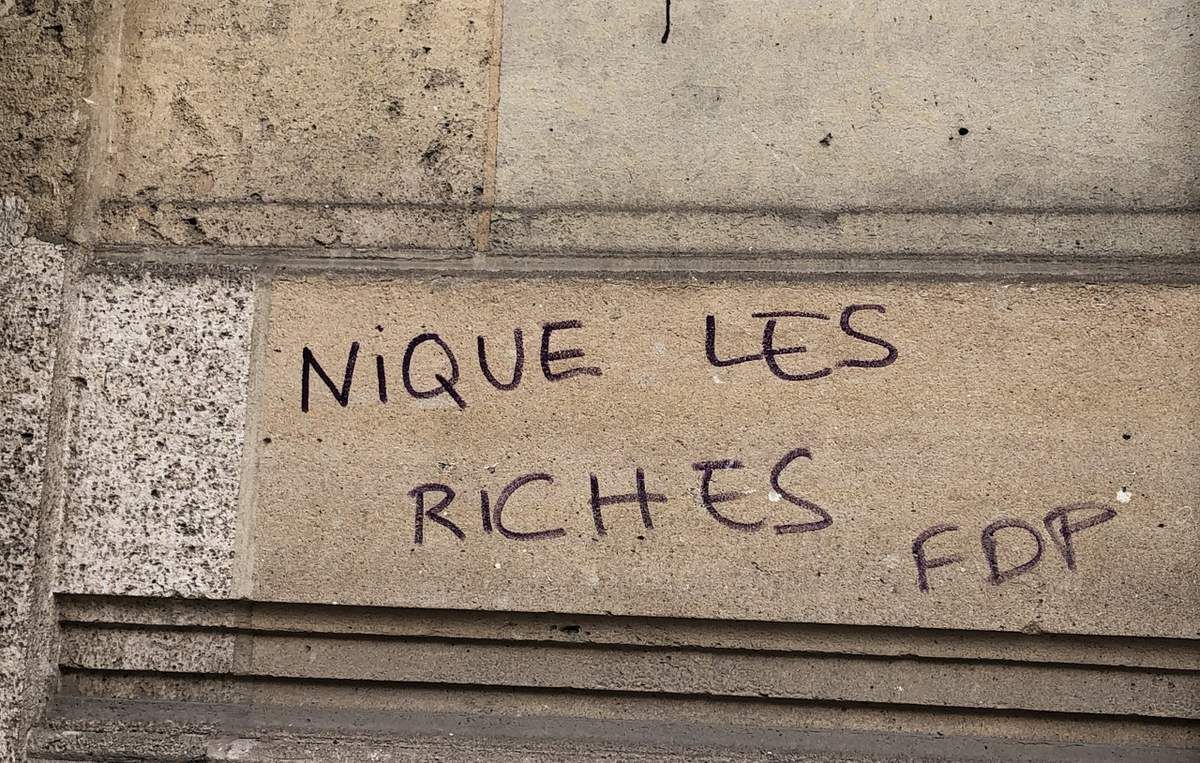 NIQUE LES
RICHES
FDP